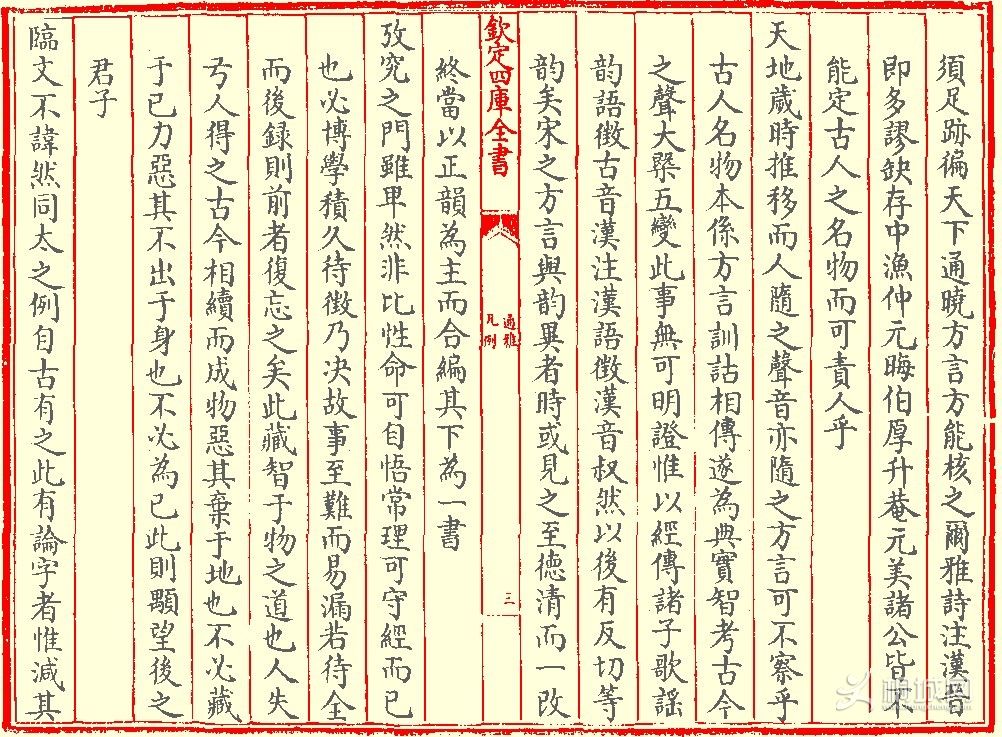 須足跡徧天下通曉方言方能核之爾雅詩注漢晉
即多謬缺存中漁仲元晦伯厚升菴元美諸公皆不
能定古人之名物而可責人乎
天地歲時推移而人隨之聲音亦隨之方言可不察乎
古人名物本係方言訓詁相傳遂為典實智考古今
之聲大槩五變此事無可明證惟以經傳諸子歌謡
韵語徵古音漢注漢語徵漢音叔然以後有反切等
韵矣宋之方言與韵異者時或見之至德清而一改
欽定四庫全書
通雅
凡例
三
終當以正韻為主而合編其下為一書
攷究之門雖卑然非比性命可自悟常理可守經而已
也必博學積久待徵乃決故事至難而易漏若待全
而後録則前者復忘之矣此藏智于物之道也人失
弓人得之古今相續而成物惡其棄于地也不必藏
于已力惡其不出于身也不必為已此則顒望後之
君子
臨文不諱然同太之例自古有之此有論字者惟減其